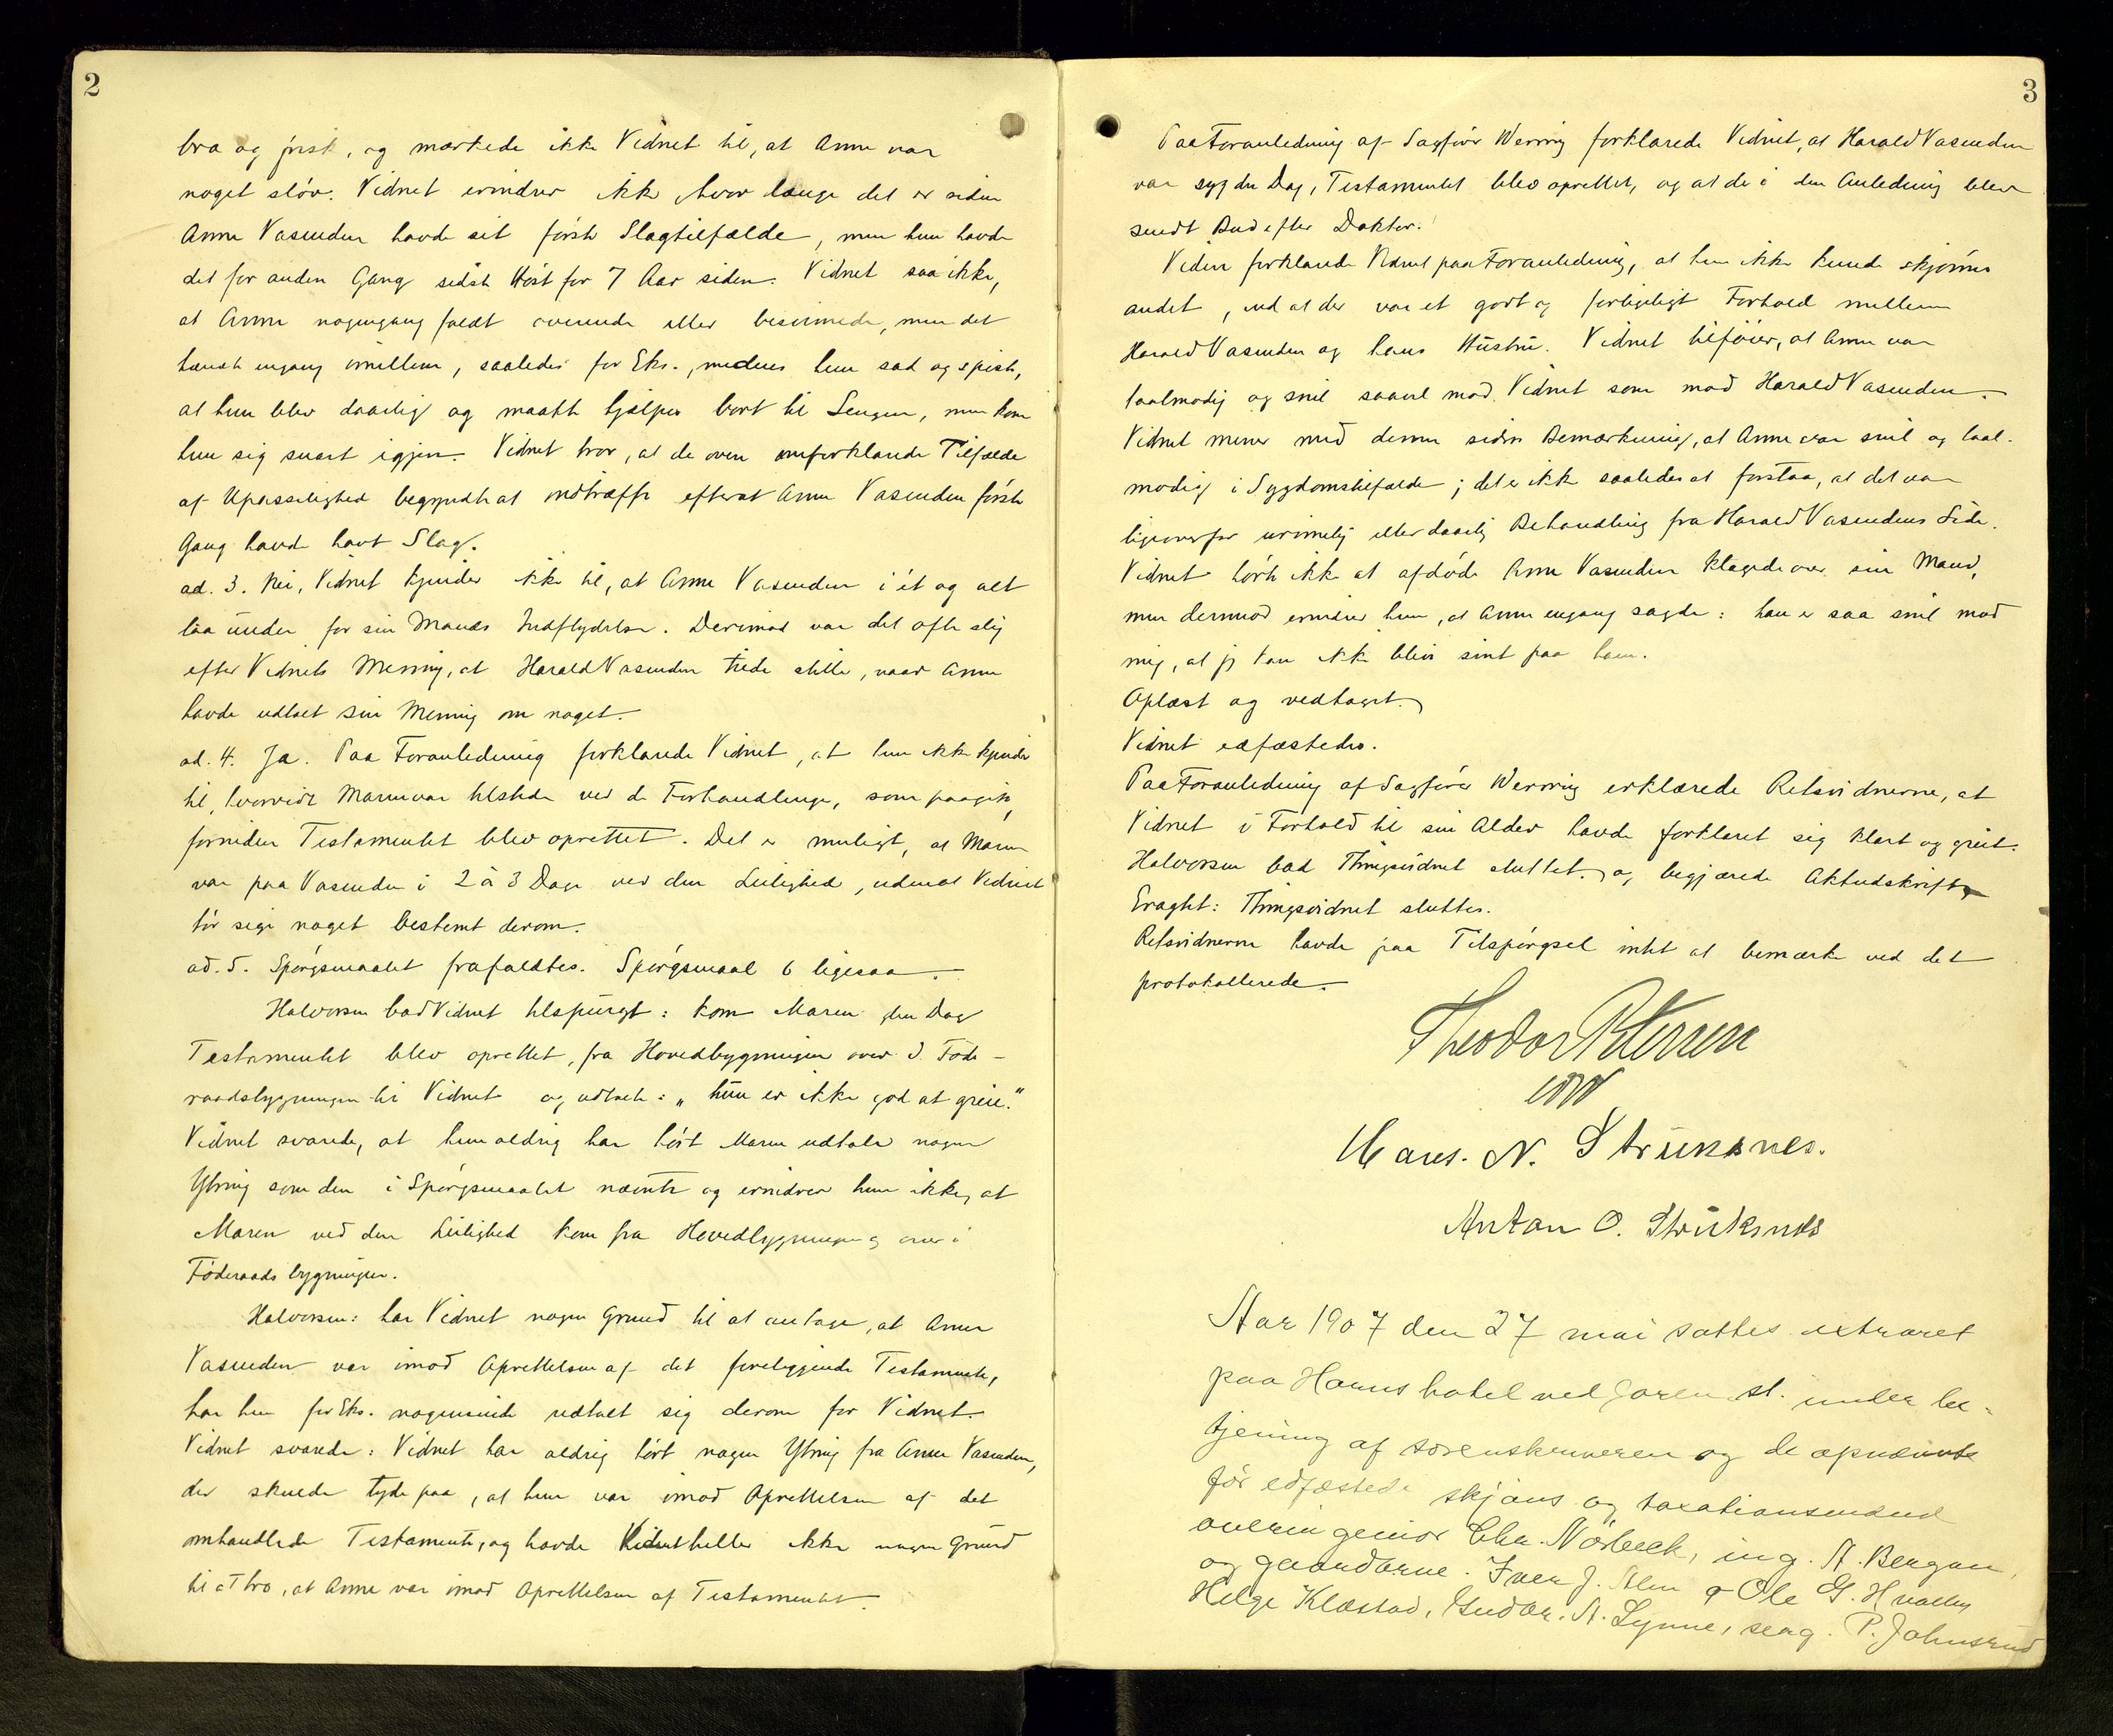 2
bra og frisk, og mærkede ikke Vidnet til, at Anne var
noget sløv. Vidnet erindrer ikke hvor længe det er siden
Anne Vasenden havde sit første Slagtilfælde, men hun havde
det for anden Gang sidste Høst for 7 Aar siden. Vidnet saa ikke,
at Anne nogengang faldt overende eller besvimede, men det
hændte engang imellem, saaledes for Eks., medens hun sad og spiste,
at hun blev daarlig og maatte hjælpes bort til Sengen, men kom
hun sig snart igjen. Vidnet tror, at de oven omforklarede Tilfælde
af Upasselighed begyndte at indtræffe efterat Anne Vasenden første
Gang havde havt Slag.
ad. 3. Nei, Vidnet kjender ikke til, at Anne Vasenden i ét og alt
laa under for sin Mands Indflydelse. Derimod var det ofte slig
efter Vidnets Mening, at Harald Vasenden tiede stille, naar Anne
havde udtalt sin Mening om noget.
ad. 4. Ja. Paa Foranledning forklarede Vidnet, at hun ikke kjender
til, hvorvidt Maren var tilstede ved de Forhandlinger, som paagik,
forinden Testamentet blev oprettet. Det er muligt, at Maren
var paa Vasenden i 2 à 3 Dage ved den Leilighed, udenat Vidnet
tør sige noget bestemt derom.
ad. 5. Spørgsmaalet frafaldtes. Spørgsmaal 6 ligesaa.
Halvorsen bad Vidnet tilspurgt: kom Maren den Dag
Testamentet blev oprettet, fra Hovedbygningen over i Føde-
raadsbygningen til Vidnet og udtalte: „hun er ikke god at greie."
Vidnet svarede, at hun aldrig har hørt Maren udtale nogen
Ytring som den i Spørgsmaalet nævnte og erindrer hun ikke, at
Maren ved den Leilighed kom fra Hovedbygningen og over i
Føderaadsbygningen.
Halvorsen: har Vidnet nogen Grund til at antage, at Anne
Vasenden var imod Oprettelsen af det foreliggende Testamente,
har hun for Eks. nogensinde udtalt sig derom for Vidnet.
Vidnet svarede: Vidnet har aldrig hørt nogen Ytring fra Anne Vasenden,
der skulde tyde paa, at hun var imod Oprettelsen af det
omhandlede Testamente, og havde Vidnet heller ikke nogen Grund
til at tro, at Anne var imod Oprettelsen af Testamentet.
3
Paa Foranledning af Sagfører Werring forklarede Vidnet, at Harald Vasenden
var syg den Dag, Testamentet blev oprettet, og at de i den Anledning blev
sendt Bud efter Doktor.
Viden forklarede Vidnet paa Foranledning, at hun ikke kunde skjønne
andet, end at der var et godt og forligeligt Forhold mellem
Harald Vasenden og hans Hustru. Vidnet tilføier, at Anne var
taalmodig og snil saavel mod Vidnet som mod Harald Vasenden.
Vidnet mener med denne sidste Bemærkning, at Anne var snil og taal-
modig i Sygdomstilfælde; det er ikke saaledes at forstaa, at det var
ligeoverfor urimelig eller daarlig Behandling fra Harald Vasendens Side.
Vidnet hørte ikke at afdøde Anne Vasenden klagede over sin Mand,
men derimod erindrer hun, at Anne engang sagde: han er saa snil mod
mig, at jeg kan ikke blive sint paa ham.
Oplæst og vedtaget.
Vidnet edfæstedes.
Paa Foranledning af Sagfører Werring erklærede Retsvidnerne, at
Vidnet i Forhold til sin Alder havde forklaret sig klart og greit.
Halvorsen bad Thingsvidnet sluttet og begjærede Aktudskrift
Eragtet: Thingsvidnet sluttes.
Retsvidnerne havde paa Tilspørgsel intet at bemærke ved det
protokollerede.
Theodor Petersen
Hans. N. Struksnes.
Anton O. Struksnes
Aar 1907 den 27 mai sattes extraret
paa Hanns hotel ved Jaren st. under be-
tjening af sorenskriveren og de opnævnte
før edfæstede skjøns og taxationsmænd
overingeniør Chr. Nørbeck, ing. A. Bergan,
og gaardbrne. Iver J. Alm & Ole G. Hvalby
Helge Klæstad, Gudbr. A. Lynne, seag. P. Johnsrud